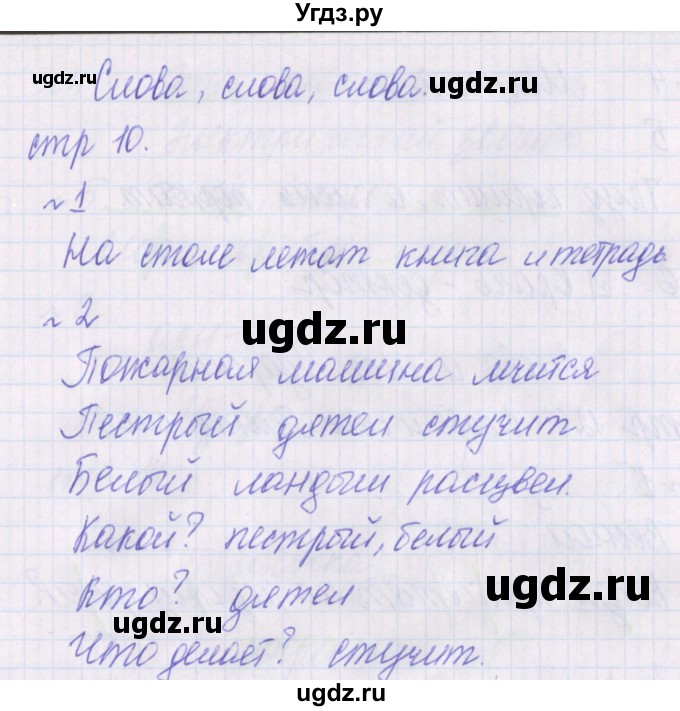 Угдз.ру
Слова, слова, слова.
ugdz.ru ugdz.ru
стр 10.
ugdz.ru ugdz.ru
~1
На столе лежат книга и тетрадь
~2
ugdz.ru
Пожарная машина мчится
Пестрый дятел стучит
Белый ландыш расцвел.
Какой? пестрый, белый
ugdz.ru
Кто? дятел
ugdz.ru
Что делает? стучит.
ugdz.ru